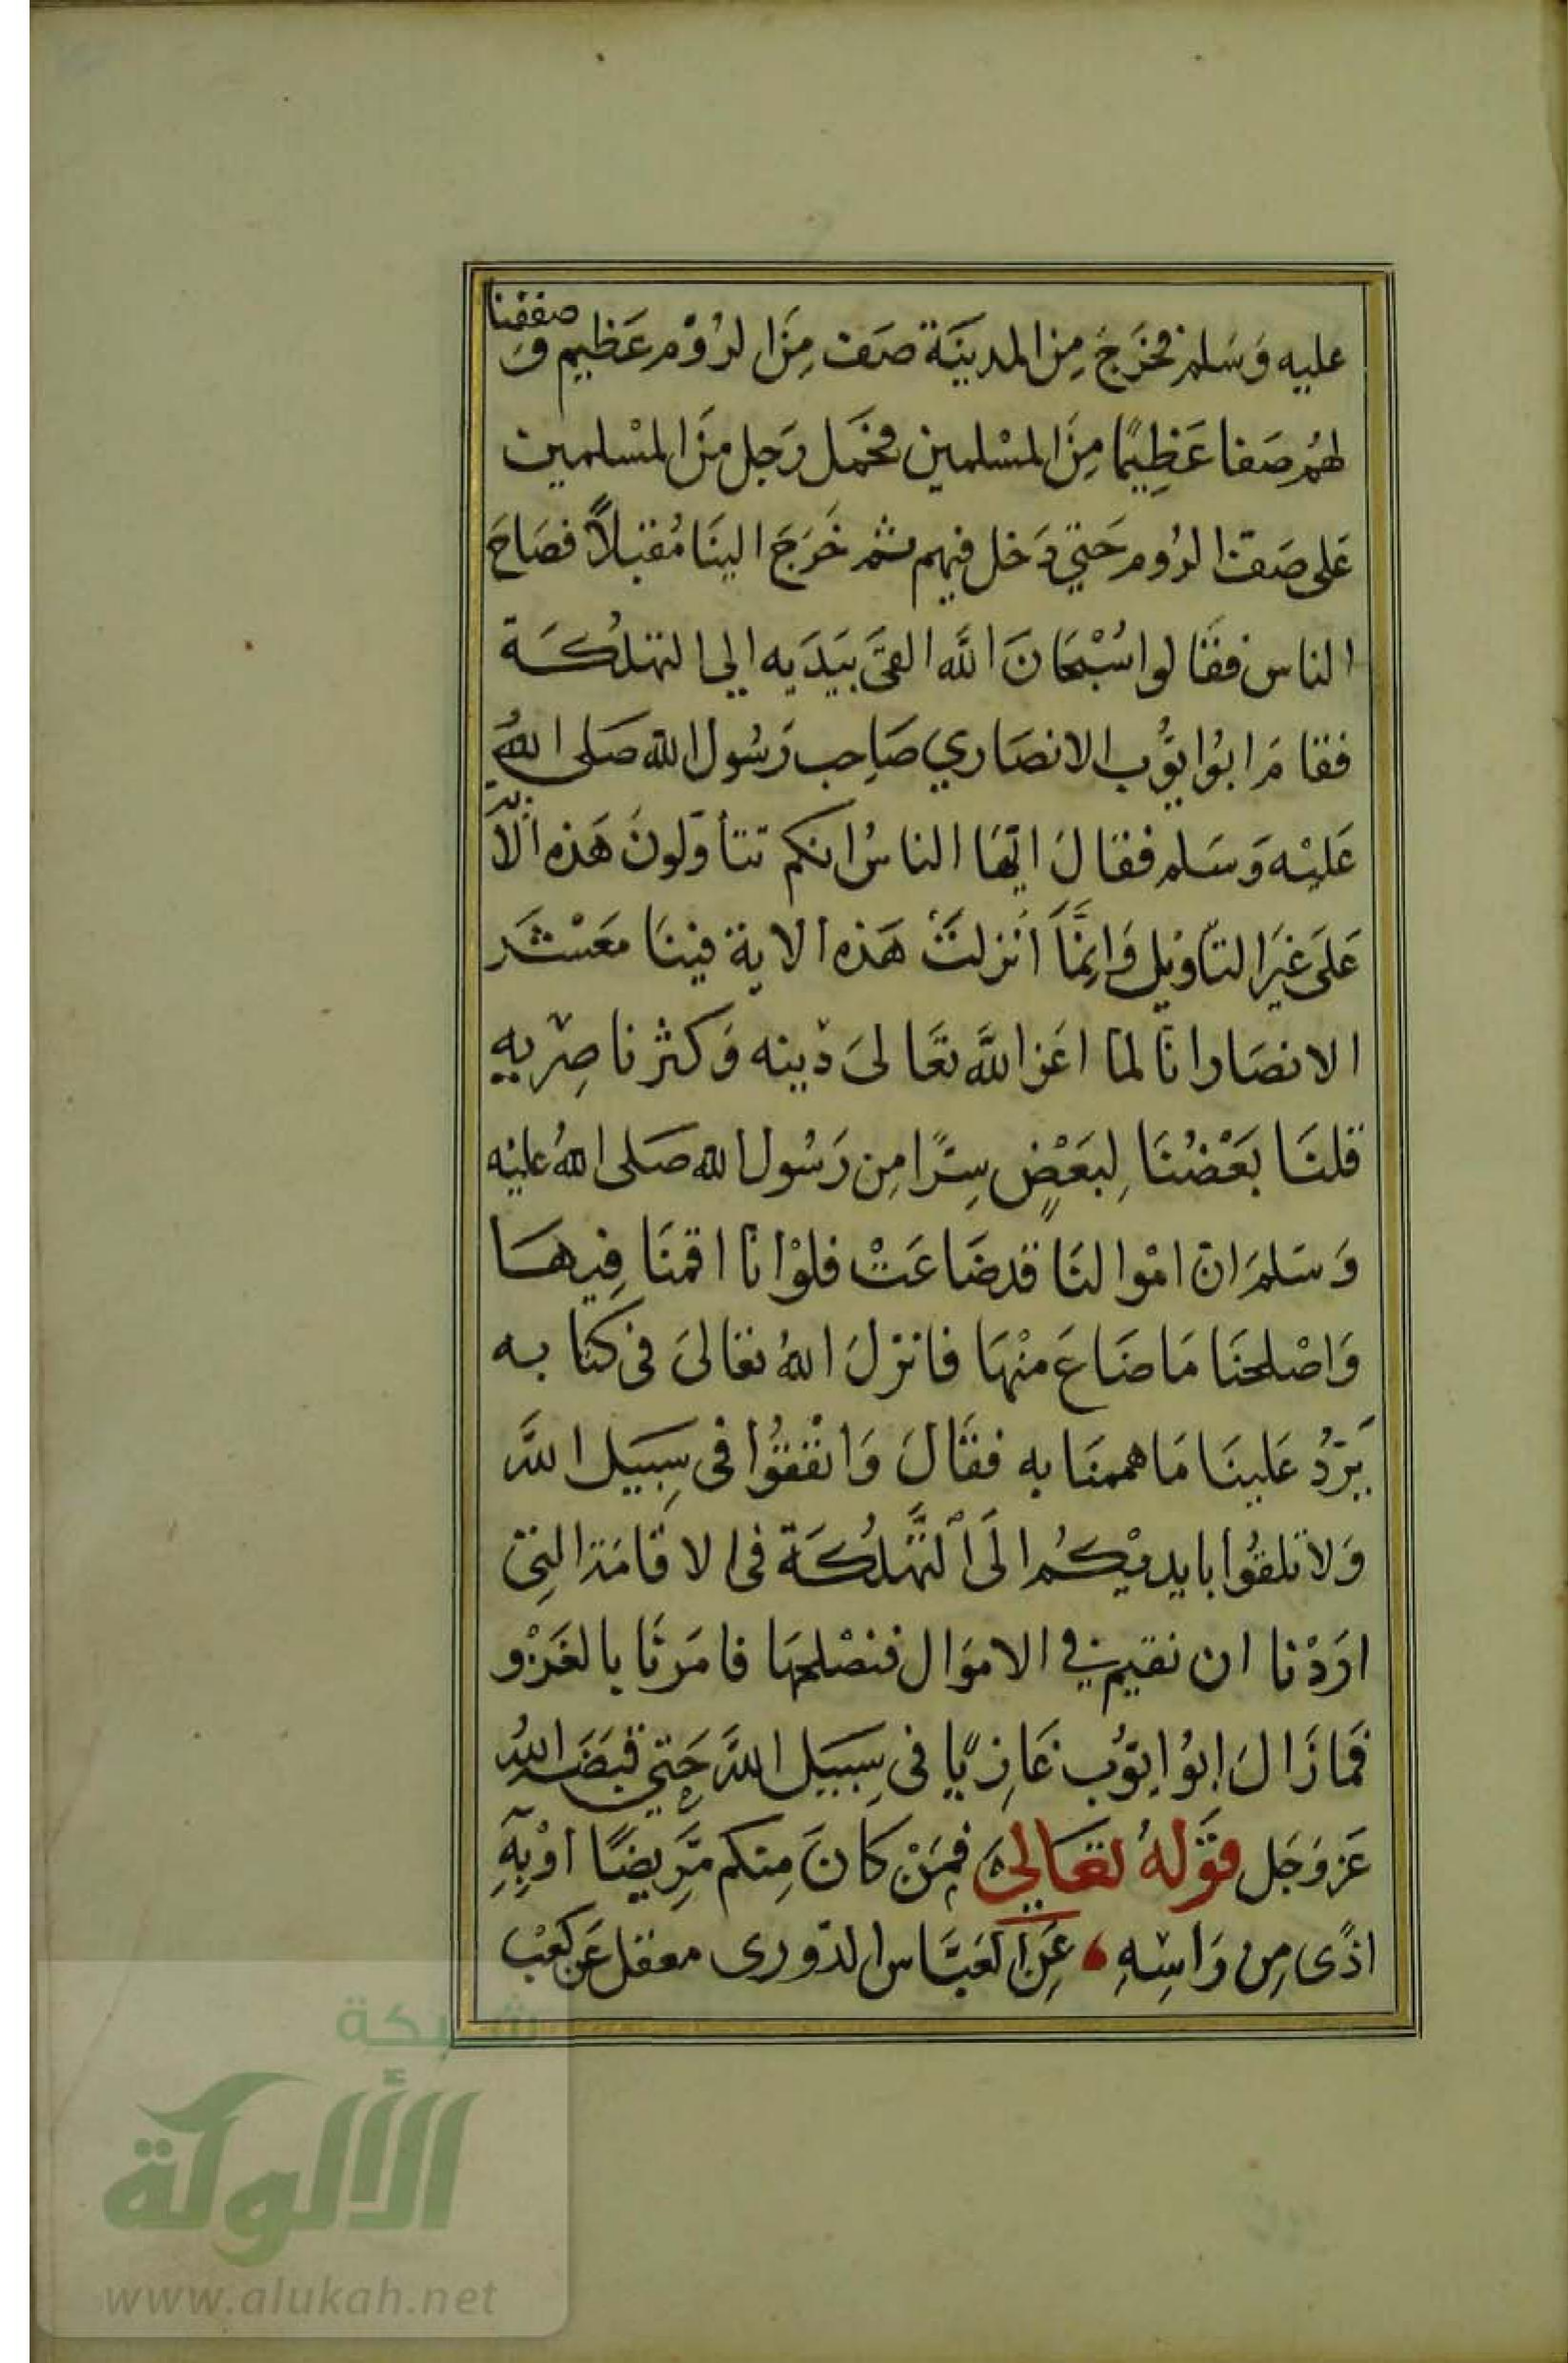 عليه وَسَلم فخَرَجَ مِنَ المدينَة صَف مِنَ الرُوْم عَظِيم وَصففنا
لهُم صَفا عَظِيمًا مِنَ المسْلمين فحَمَل رَجل مِنَ المسْلمين
عَلى صَف الرُوم حَتي دَخل فيهم ثم خَرَجَ الينَا مُقبلاً فصَاحَ
الناس فقَالوا سُبْحَانَ الله القىَ بيَدَيه الي التهلُكَة
فقامَ ابوُ ايوُّب الانصَاري صَاحِب رَسُول الله صَلى اللهُ
عَليْه وَسَلم فقالَ ايّهَا الناسُ انكم تتأوّلونَ هَذِه الآية
عَلىَ غيَر التأويْل وَانِمَّا أنزلتْ هَذِه الاية فينَا مَعْشَر
الانصَار انا لما اعَز اللهَّ تعَالىَ دْينه وَكثر ناصِرْيه
قلنَا بَعْضُنَا لِبعَضٍ سِرًّا مِن رَسُول الله صَلى اللهُ عليْه
وَسَلمَ ان امْوالنَا قدضَاعَتْ فلوْ انا اقمنَا فِيهَا
وَاصْلحنَا مَا ضَاعَ منْهَا فانزلَ اللهُ تعَالىَ فى كتابه
يَرّدُ عَلينَا مَا هممنَا به فقَالَ وَانْفقوُا فى سِبَيل اللهَّ
وَلا تلقوُا بايديْكمُ الَى التَّهْلُكَة فى الاقامَة التِى
ارَدْنا ان نقيم في الامَوَال فنصْلحهَا فامَرنَا بالغَزْو
فمَا زَالَ ابوُ ايوّب غَازيًا فى سِبَيل اللهَّ حَتي قبَضَه اللهُ
عَز وَجَل قوَلهُ تعَالىَ فمَنْ كانَ مِنكم مَّرِيضًا اوْ بِهِ
اذًى مِن رَاسِهِ عَنِ العَبَّاس الدّورى معقل عَن كعْب
شبكة
الألوكة
www.alukah.net